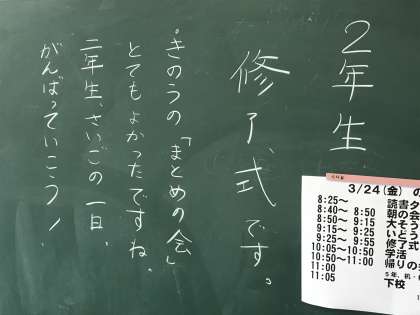 2年生
修了式です。
・きのうの「まとめの会」
とてもよかったですね、
二年生、さいごの一日、
がんばっていこう!
3/24(金) の
8:25〜 読書タ
8:40〜 8:50 朝の会
8:50〜 9:15 大そう
9:15〜 9:25 いどう
9:25〜 9:55 修了式
10:05〜10:50 学活
10:50〜11:00 帰りの
11:00 5年、机・
11:05 下校